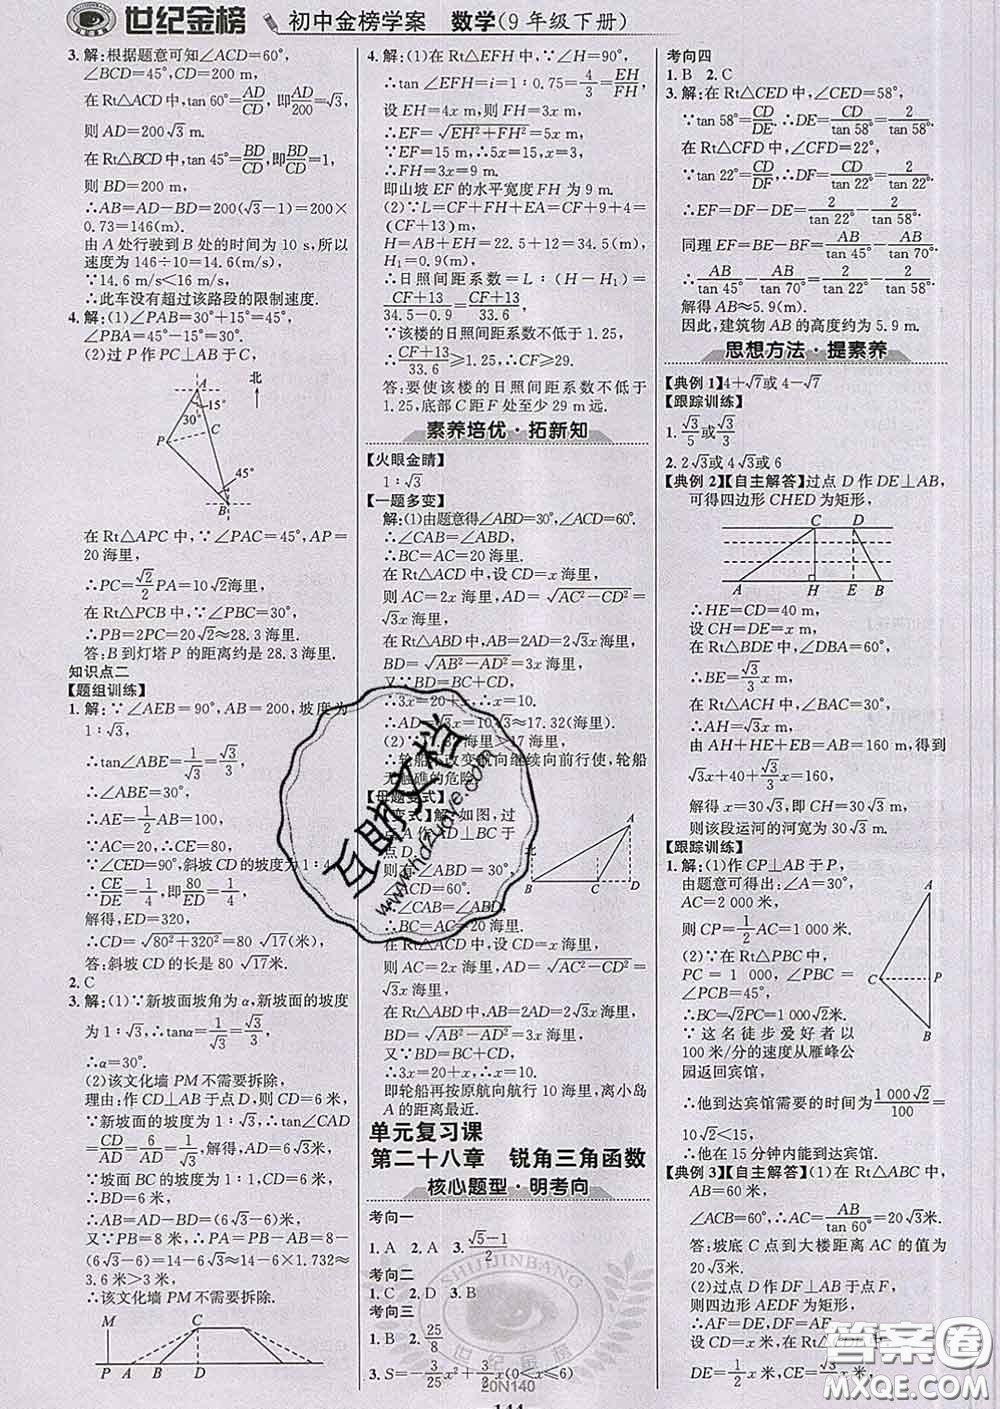 世纪金榜 初中金榜学案 数学(9年级下册)
3. 解:根据题意可知∠ACD=60°,
∠BCD=45°,CD=200 m,
在 Rt△ACD 中,tan 60°=AD/CD,即AD/200=√3,
则 AD=200√3 m.
在 Rt△BCD 中,tan 45°=BD/CD,即BD/CD=1,
则 BD=200 m,
∴AB=AD-BD=200(√3-1)=200×
0.73=146(m).
由 A 处行驶到 B 处的时间为 10 s,所以
速度为 146÷10=14.6(m/s),
∵14.6 m/s<16 m/s,
∴此车没有超过该路段的限制速度.
4. 解:(1)∠PAB=30°+15°=45°,
∠PBA=45°-15°=30°.
(2)过 P 作 PC⊥AB 于 C,
A
北
15°
30°
P
C
45°
B
在 Rt△APC 中,∵∠PAC=45°,AP=
20 海里,
∴PC=√2/2PA=10√2海里,
在 Rt△PCB 中,∵∠PBC=30°,
∴PB=2PC=20√2≈28.3 海里.
答:B 到灯塔 P 的距离约是 28.3 海里.
知识点二
【题组训练】
1. 解:∵∠AEB=90°,AB=200,坡度为
1∶√3,
∴tan∠ABE=1/√3=√3/3,
∴∠ABE=30°,
∴AE=1/2AB=100,
∵AC=20,∴CE=80,
∵∠CED=90°,斜坡 CD 的坡度为 1∶4,
∴CE/DE=1/4,即80/ED=1/4,
解得,ED=320,
∴CD=√(80²+320²)=80√17(米),
答:斜坡 CD 的长是 80√17米.
2. C
3. 解:(1)∵新坡面坡角为 α,新坡面的坡度
为 1∶√3,∴tanα=1/√3=√3/3,
∴α=30°.
(2)该文化墙 PM 不需要拆除,
理由:作 CD⊥AB 于点 D,则 CD=6 米,
∵新坡面的坡度为 1∶√3,∴tan∠CAD=
CD/AD=6/AD=1/√3,解得,AD=6√3米,
∵坡面 BC 的坡度为 1∶1,CD=6 米,
∴BD=6 米,
∴AB=AD-BD=(6√3-6)米,
又∵PB=8 米,∴PA=PB-AB=8-
(6√3-6)=14-6√3≈14-6×1.732≈
3.6 米>3 米,
∴该文化墙 PM 不需要拆除.
M
C
P A B D
4. 解:(1)在 Rt△EFH 中,∵∠H=90°,
∴tan ∠EFH=i=1∶0.75=4/3=EH/FH,
设 EH=4x m,则 FH=3x m,
∴EF=√(EH²+FH²)=5x m,
∵EF=15 m,∴5x=15,x=3,
∴FH=3x=9 m.
即山坡 EF 的水平宽度 FH 为 9 m.
(2)∵L=CF+FH+EA=CF+9+4=
(CF+13)m,
H=AB+EH=22.5+12=34.5(m),
H₁=0.9(m),
∴日照间距系数=L∶(H-H₁)=
(CF+13)/(34.5-0.9)=(CF+13)/33.6,
∵该楼的日照间距系数不低于 1.25,
∴(CF+13)/33.6≥1.25,∴CF≥29.
答:要使该楼的日照间距系数不低于
1.25,底部 C 距 F 处至少 29 m 远.
素养培优·拓新知
【火眼金睛】
1∶√3
【一题多变】
解:(1)由题意得∠ABD=30°,∠ACD=60°.
∴∠CAB=∠ABD,
∴BC=AC=20 海里.
在 Rt△ACD 中,设 CD=x 海里,
则 AC=2x 海里,AD=√(AC²-CD²)=
√3x 海里,
在 Rt△ABD 中,AB=2AD=2√3x 海里,
BD=√(AB²-AD²)=3x 海里,
又∵BD=BC+CD,
∴3x=20+x,∴x=10.
∴AD=√3x=10√3≈17.32(海里).
(2)∵17.32海里>17 海里,
∴轮船不改变航向继续向前行使,轮船
无触礁的危险.
【母题变式】
【变式】解:如图,过
点 A 作 AD⊥BC 于
点 D.
∠ABD=30°,
∠ACD=60°.
∴∠CAB=∠ABD,
∴BC=AC=20 海里.
在 Rt△ACD 中,设 CD=x 海里,
则 AC=2x 海里,AD=√(AC²-CD²)=
√3x 海里,
在 Rt△ABD 中,AB=2AD=2√3x 海里,
BD=√(AB²-AD²)=3x 海里,
又∵BD=BC+CD,
∴3x=20+x,∴x=10.
即轮船再按原航向航行 10 海里,离小岛
A 的距离最近.
A
北
B C D
单元复习课
第二十八章 锐角三角函数
核心题型·明考向
考向一
1. A 2. A 3. (√5-1)/2
考向二
1. C 2. D 3. B
考向三
1. B 2. 25/8
3. S=-3/25x²+3/2x(0<x≤6)
考向四
1. B 2. C
3. 解:在 Rt△CED 中,∠CED=58°,
∵tan 58°=CD/DE.∴DE=CD/tan 58°,
在 Rt△CFD 中,∠CFD=22°,
∵tan 22°=CD/DF,∴DF=CD/tan 22°,
∴EF=DF-DE=CD/tan 22°-CD/tan 58°,
同理 EF=BE-BF=AB/tan 45°-AB/tan 70°,
∴AB/tan 45°-AB/tan 70°=CD/tan 22°-CD/tan 58°,
解得 AB≈5.9(m).
因此,建筑物 AB 的高度约为 5.9 m.
思想方法·提素养
【典例 1】4+√7或 4-√7
【跟踪训练】
1. √3/5或√3/3
2. 2√3或 4√3或 6
【典例 2】【自主解答】过点 D 作 DE⊥AB,
可得四边形 CHED 为矩形,
C D
A H E B
∴HE=CD=40 m,
设 CH=DE=x m,
在 Rt△BDE 中,∠DBA=60°,
∴BE=√3/3x m,
在 Rt△ACH 中,∠BAC=30°,
∴AH=√3x m.
由 AH+HE+EB=AB=160 m,得到
√3x+40+√3/3x=160,
解得 x=30√3,即 CH=30√3 m,
则该段运河的河宽为 30√3 m.
【跟踪训练】
1. 解:(1)作 CP⊥AB 于 P,
由题意可得出:∠A=30°,
AC=2 000 米,
则 CP=1/2AC=1 000 米.
(2)∵在 Rt△PBC 中,
PC=1 000 米,
∠PBC=∠BPC=45°,
∴BC=√2PC=1 000√2米.
∵这名徒步爱好者以
100 米/分的速度从雁峰公
园返回宾馆,
∴他到达宾馆需要的时间为1 000√2/100=
10√2<15,
∴他在 15 分钟内能到达宾馆.
A
C P
B
【典例 3】【自主解答】(1)在 Rt△ABC 中,
AB=60 米,
∠ACB=60°,∴AC=AB/tan 60°=20√3米.
答:坡底 C 点到大楼距离 AC 的值为
20√3米.
(2)过点 D 作 DF⊥AB 于点 F,
则四边形 AEDF 为矩形,
∴AF=DE,DF=AE.
设 CD=x 米,在 Rt△CDE 中,
DE=1/2x 米,CE=√3/2x 米,
互助文档
www.hdzuoye.com
SHIJIJINBANG
世纪金榜
20N140
144
答案圈
MXQE.COM